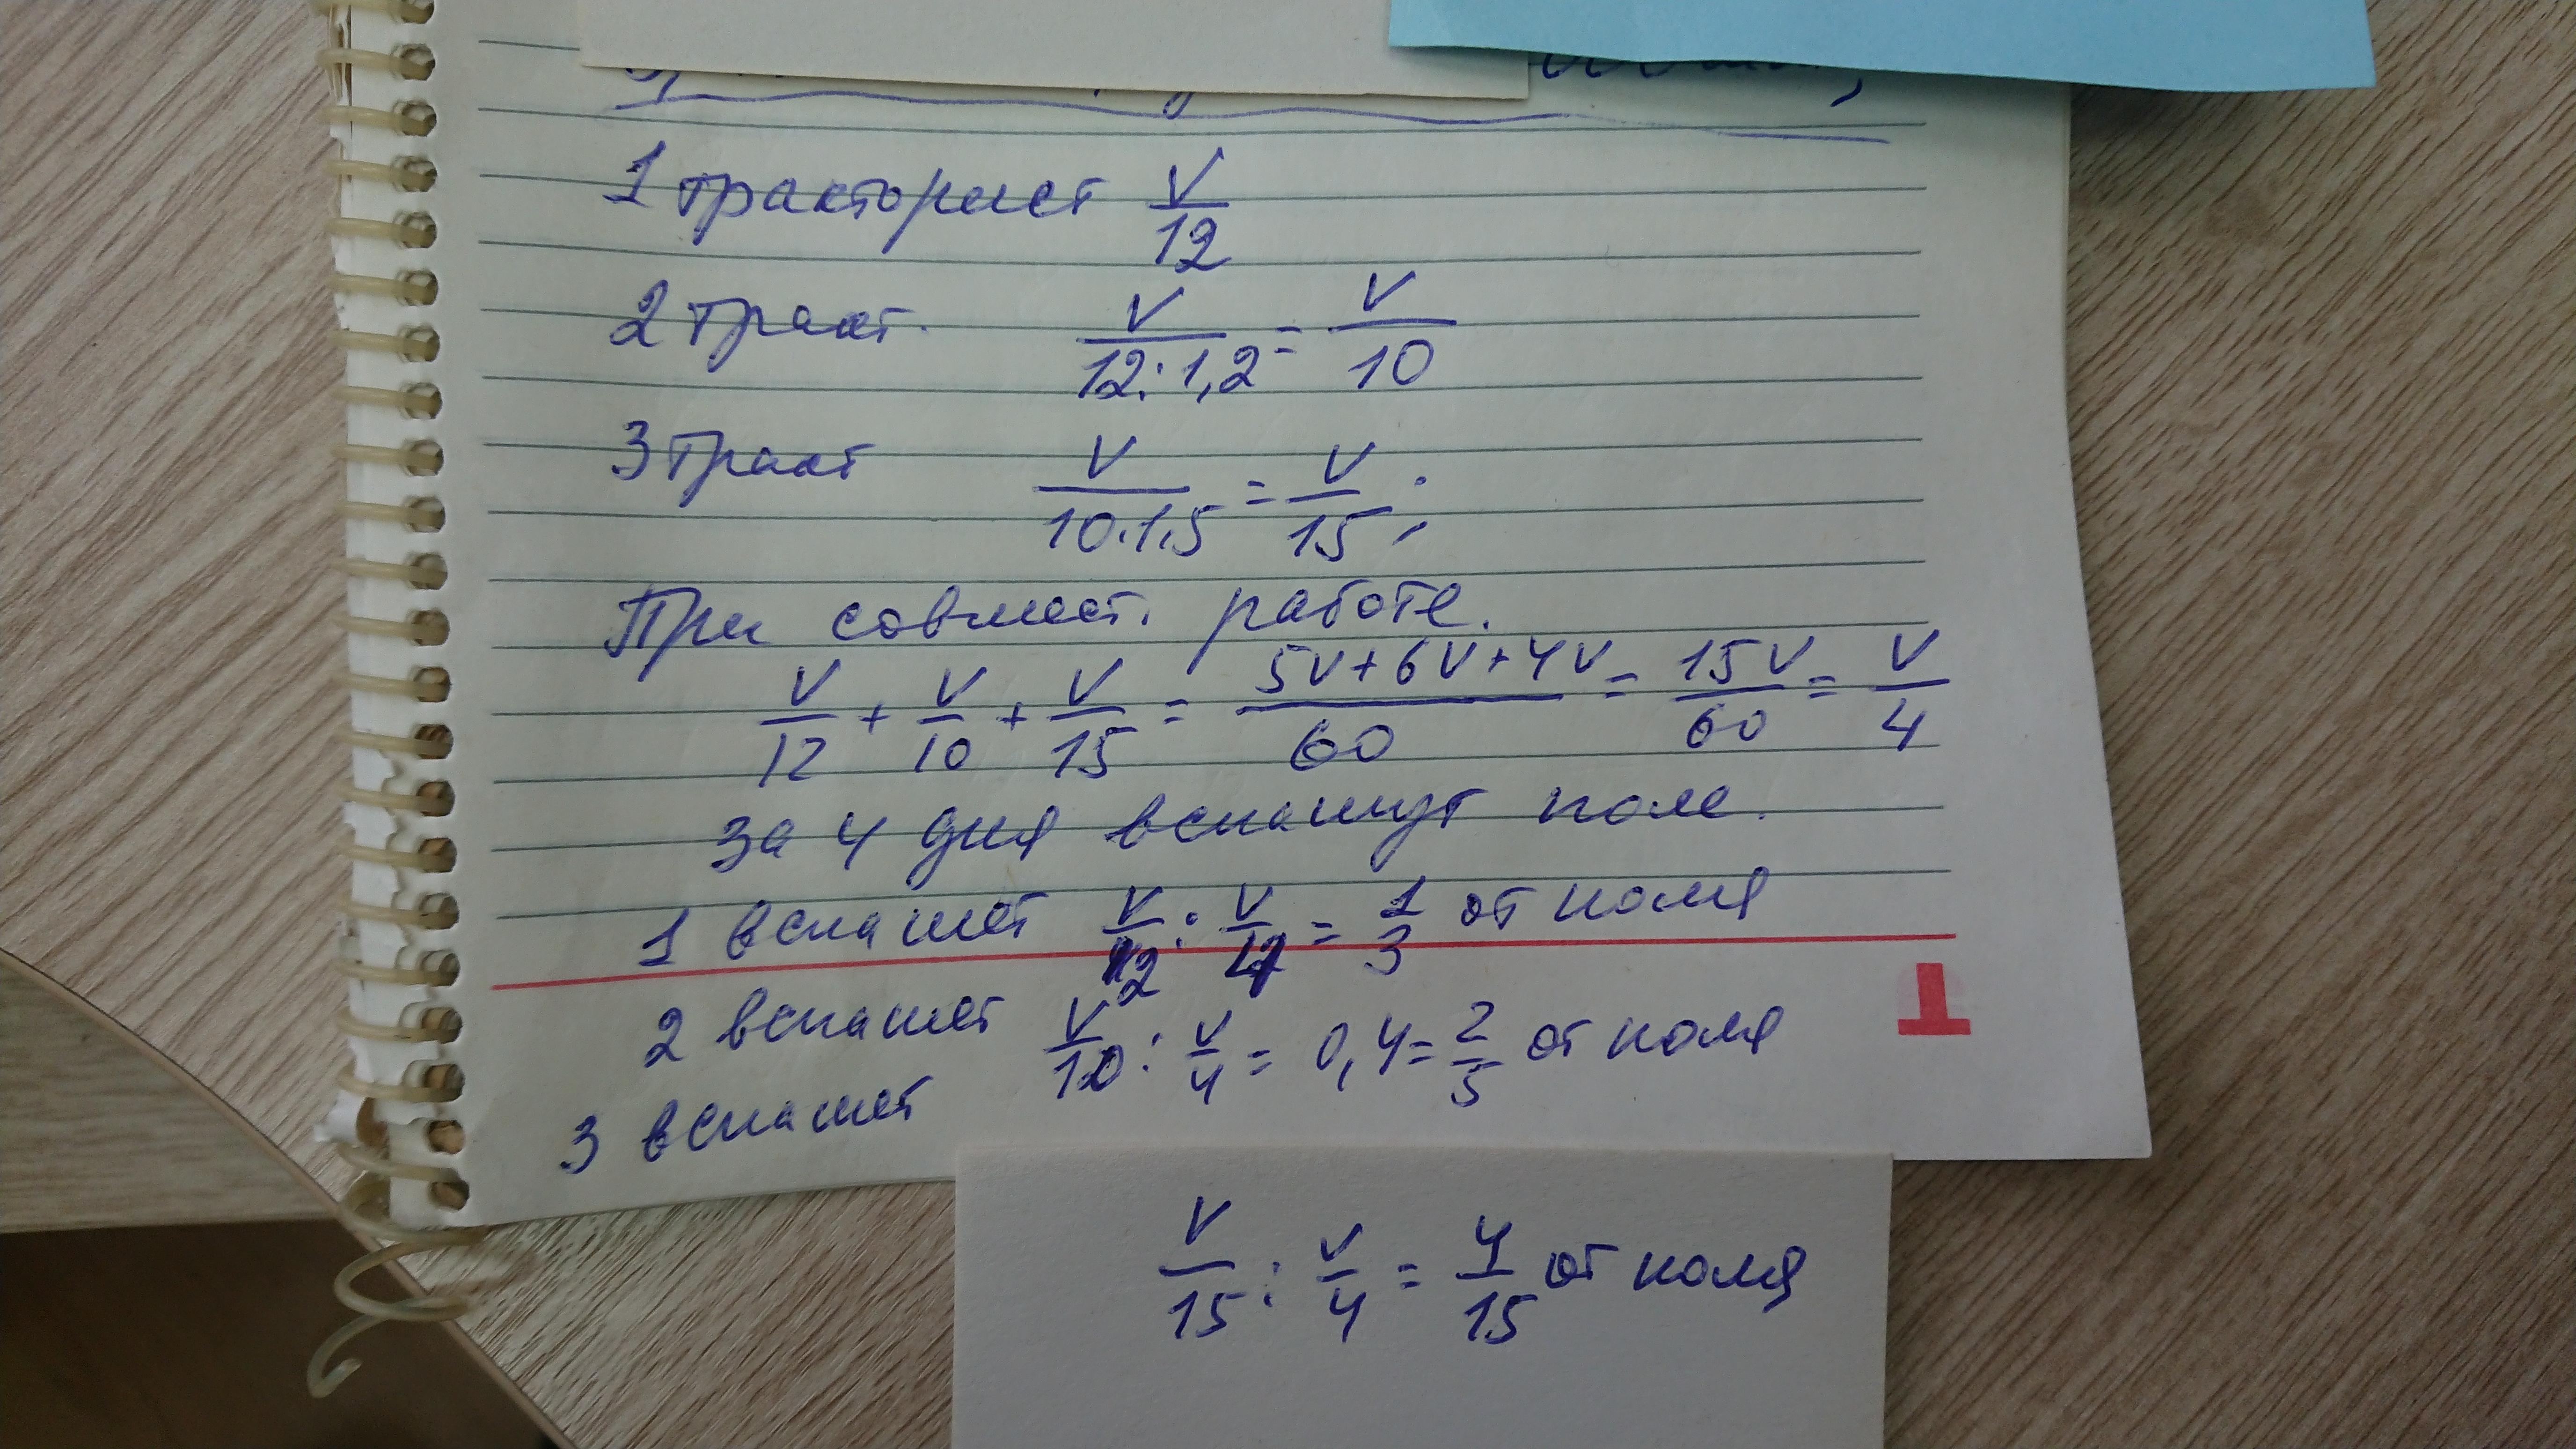 1 тракторист V/12
2 тракт. V/12:1,2 = V/10
3 тракт V/10·1,5 = V/15;
При совмест. работе.
V/12 + V/10 + V/15 = 5V+6V+4V/60 = 15V/60 = V/4
За 4 дня вспашут поле.
1 вспашет V/12 : V/4 = 1/3 от поля
2 вспашет V/10 : V/4 = 0,4 = 2/5 от поля
3 вспашет
V/15 : V/4 = 4/15 от поля